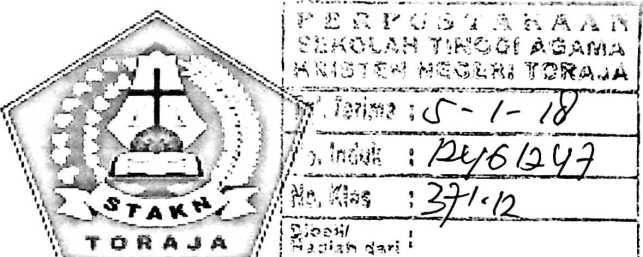 STAKN
TORAJA
PERPUSTAKAAN
SEKOLAH TINGGI AGAMA
KRISTEN NEGERI TORAJA
Tgl. Terima : 5-1-18
No. Induk :
No. Klas : 371.12
Dibeli/
Hadiah dari :